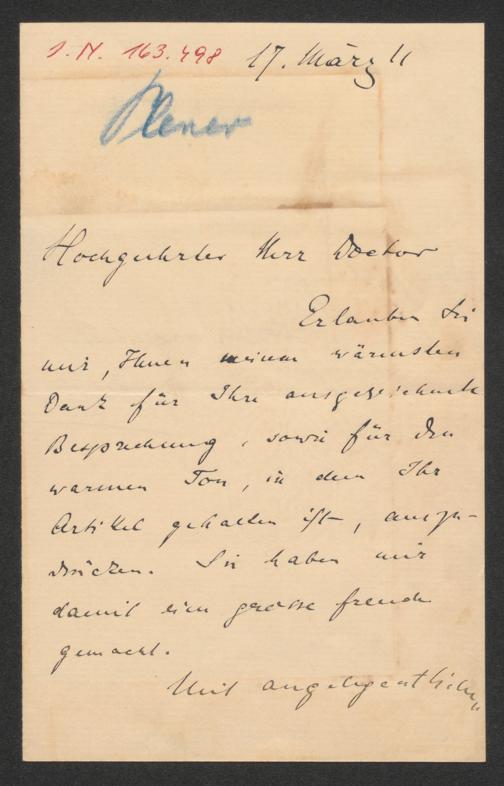 I. N. 163.498
17. März 11
Plener
Hochgeehrter Herr Doctor
Erlauben Sie
mir, Ihnen meinen wärmsten
Dank für Ihre ausgezeichnete
Besprechung, sowie für den
warmen Ton, in dem Ihr
Artikel gehalten ist, auszu-
drücken. Sie haben mir
damit eine grosse Freude
gemacht.
Mit angelegentlichen